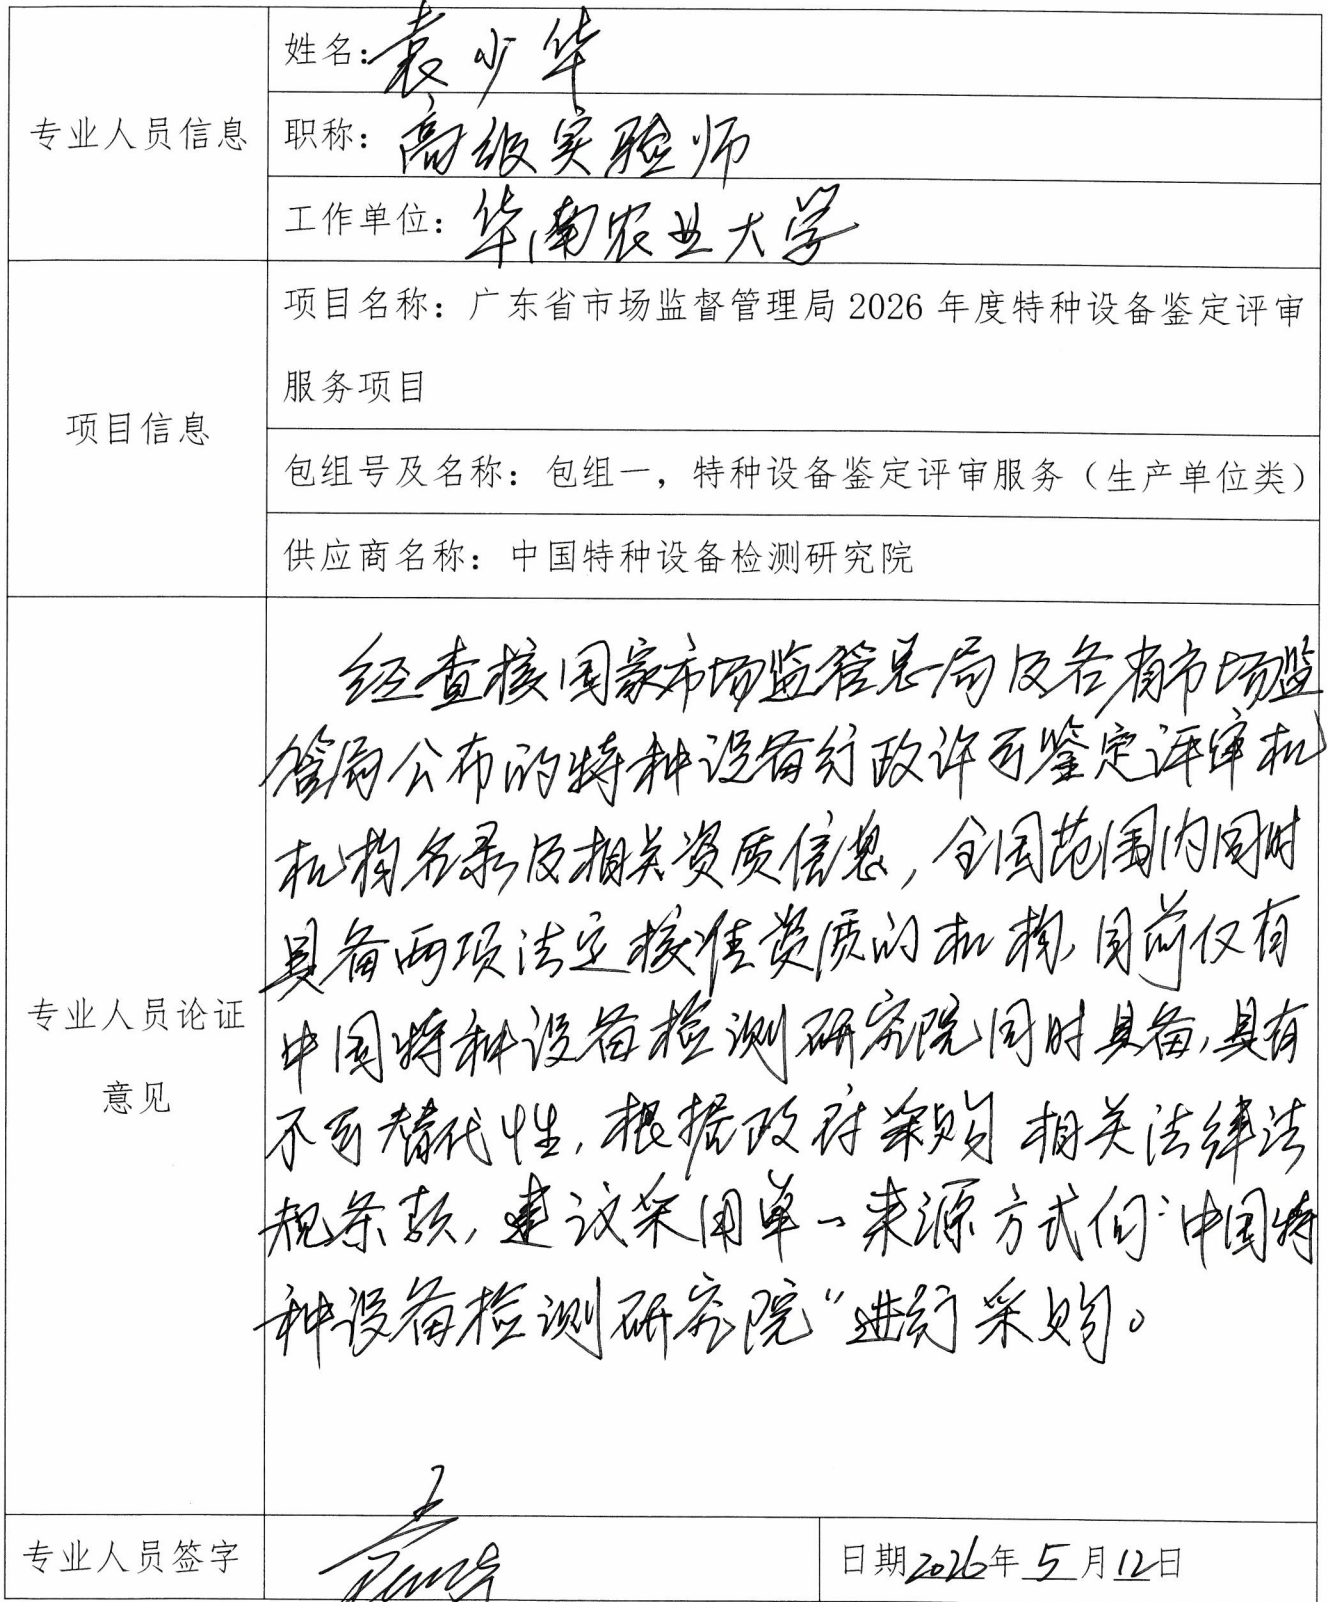 姓名：袁少华
专业人员信息
职称：高级实验师
工作单位：华南农业大学
项目名称：广东省市场监督管理局 2026 年度特种设备鉴定评审
服务项目
项目信息
包组号及名称：包组一，特种设备鉴定评审服务（生产单位类）
供应商名称：中国特种设备检测研究院
经查核国家市场监管总局及各省市场监
管局公布的特种设备行政许可鉴定评审机
机构名录及相关资质信息，全国范围内同时
具备两项法定核准资质的机构，目前仅有
专业人员论证
中国特种设备检测研究院同时具备，具有
意见
不可替代性，根据政府采购相关法律法
规条款，建议采用单一来源方式向“中国特
种设备检测研究院”进行采购。
专业人员签字
日期2026年 5 月12日